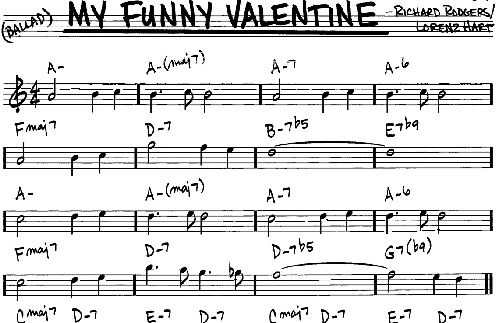 (BALLAD) MY FUNNY VALENTINE -RICHARD RODGERS/
LORENZ HART
A- A-(maj7) A-7 A-6
Fmaj7 D-7 B-7b5 E7b9
A- A-(maj7) A-7 A-6
Fmaj7 D-7 D-7b5 G7(b9)
Cmaj7 D-7 E-7 D-7 Cmaj7 D-7 E-7 D-7